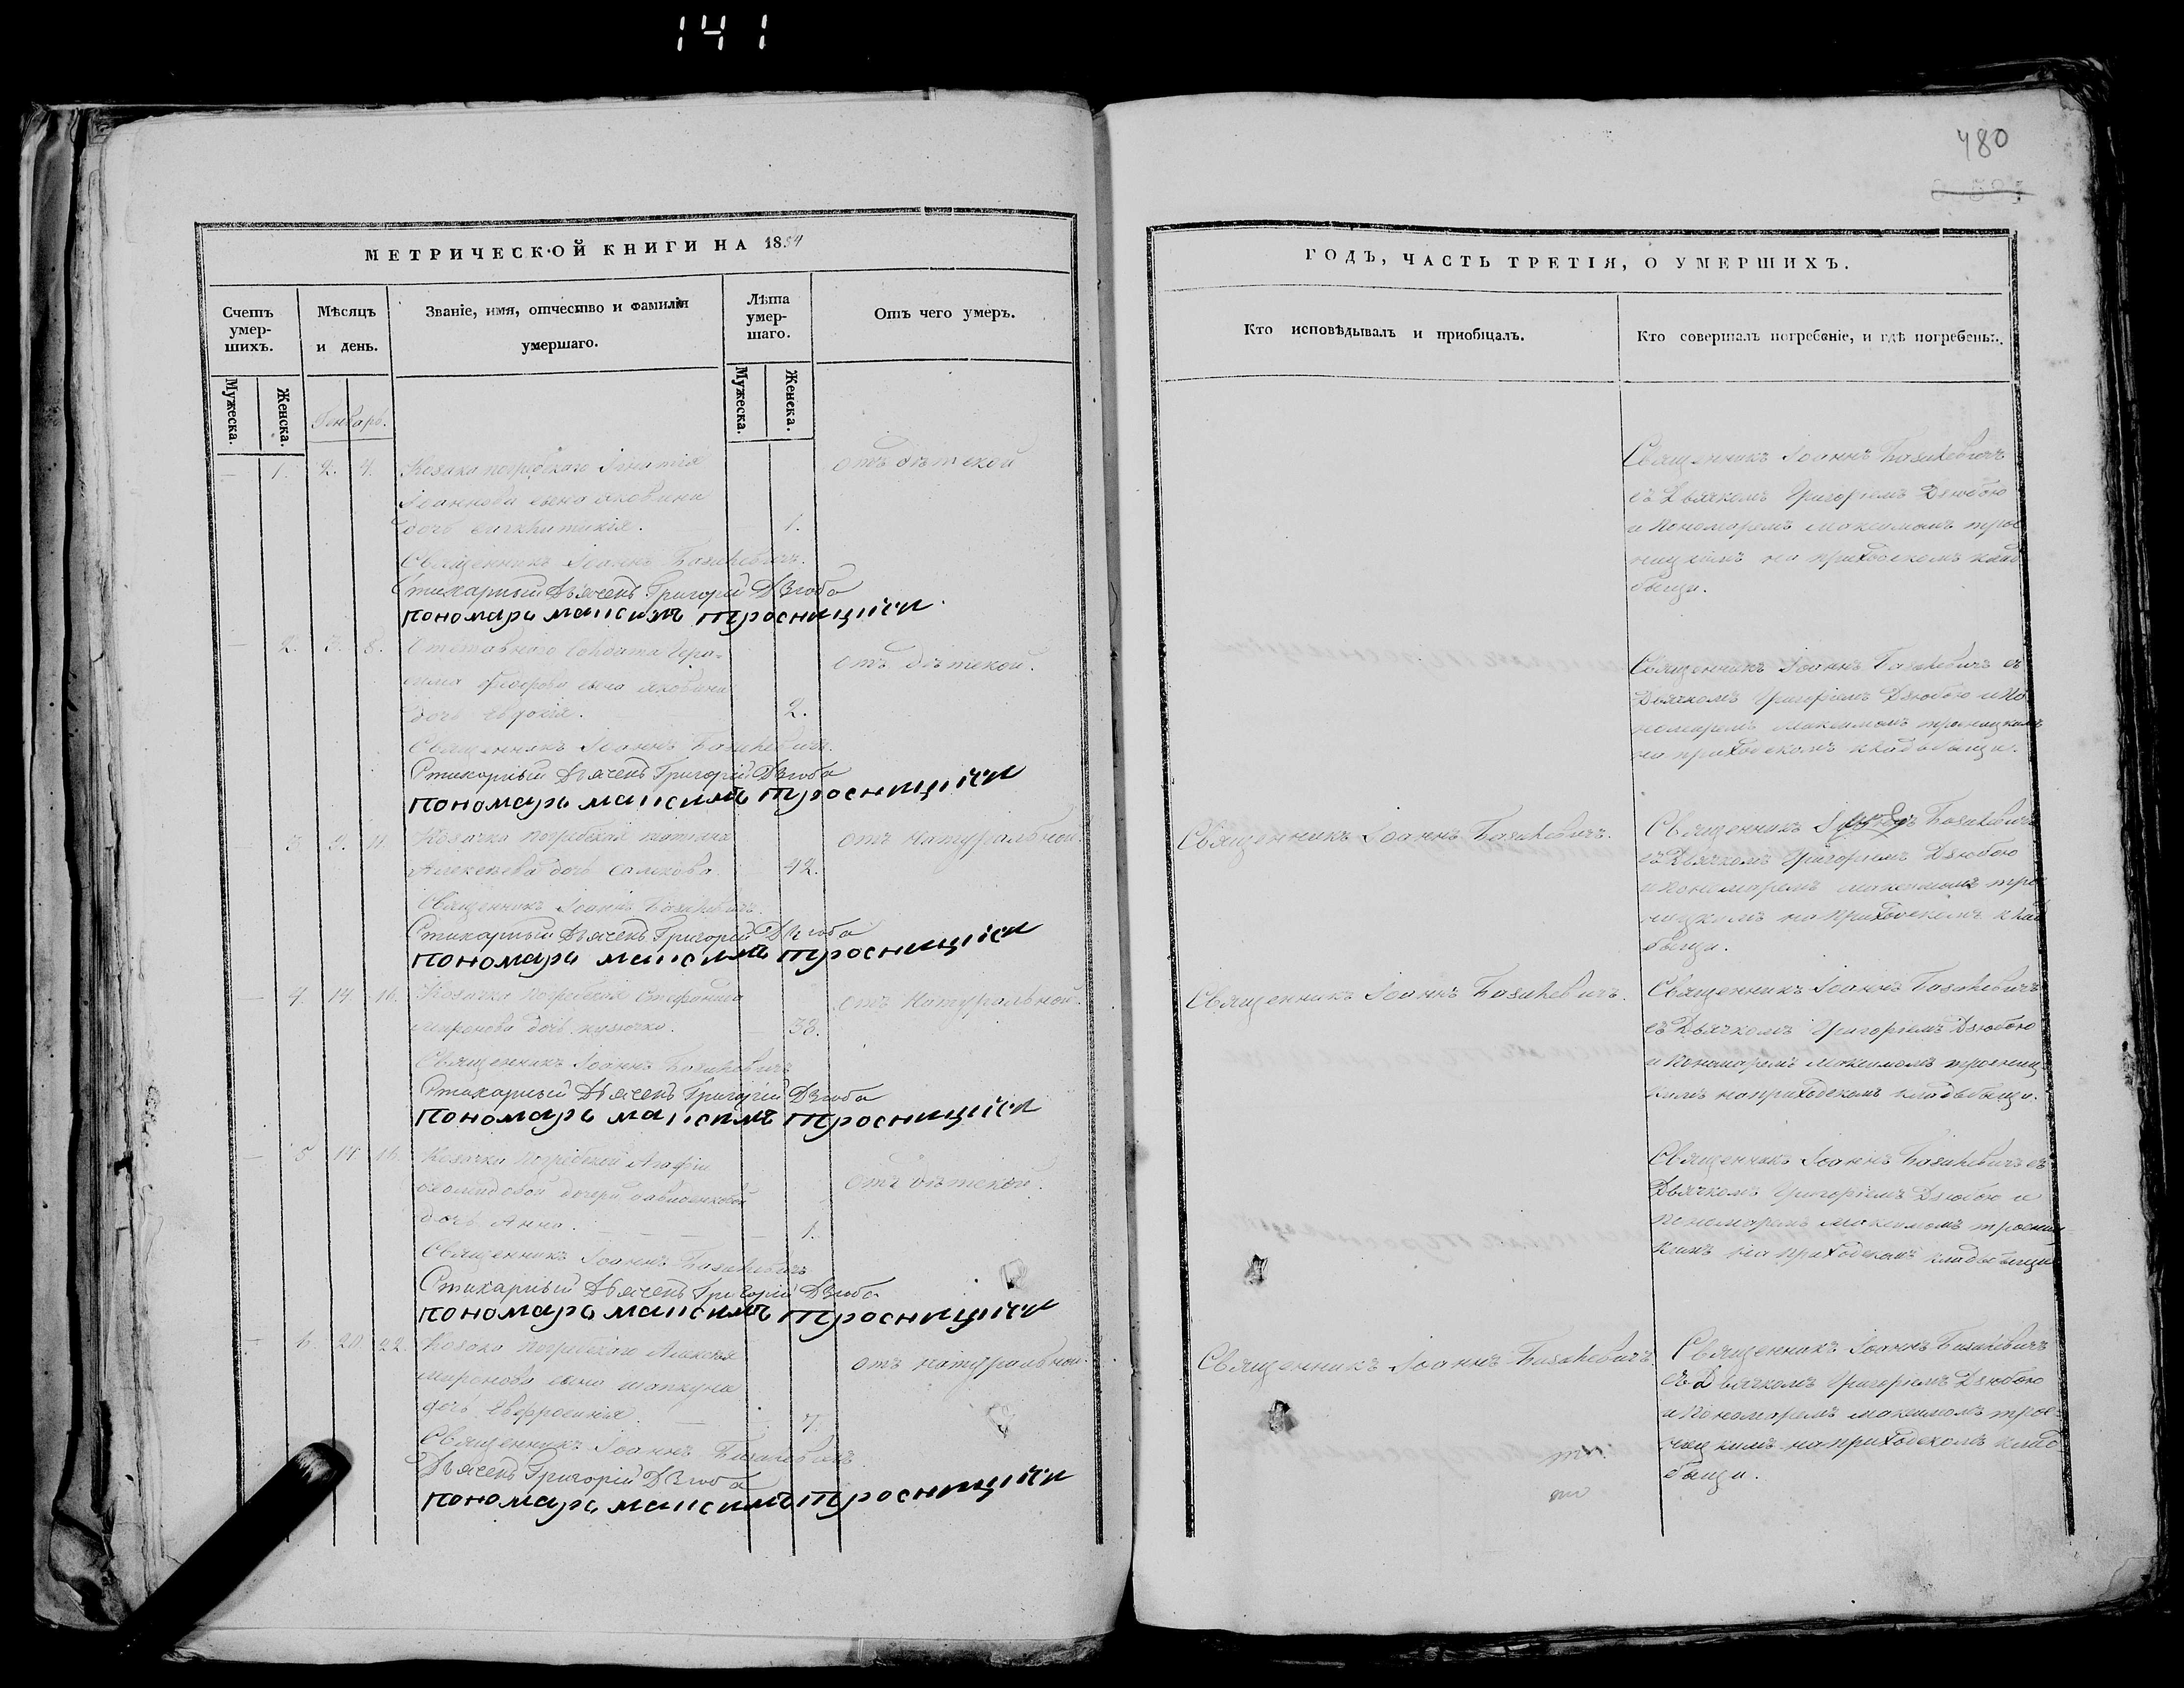 141
480
МЕТРИЧЕСКОЙ КНИГИ НА 1854
Счетъ умер-
шихъ.
Мѣсяцъ
и день.
Званіе, имя, отчество и фамилія
умершаго.
Лѣта
умер-
шаго.
Отъ чего умеръ.
Мужеска.
Женска.
Мужеска.
Женска.
Январь.
1. 2. 4. Козака погребскаго Игнатія отъ дѣтской
Іоаннова сына
дочь 1.
Священникъ Іоаннъ Базилевичъ.
Стихарный Дьячекъ Григорій Дзюба
пономарь максимъ тросницкій
2. 3. 5. Отставного солдата
сына отъ дѣтской.
дочь 2.
Священникъ Іоаннъ Базилевичъ.
Стихарный Дьячекъ Григорій Дзюба
пономарь максимъ тросницкій
3. 9. 11. Козачка погребская отъ натуральной.
Алексѣева дочь 42.
Священникъ Іоаннъ Базилевичъ.
Стихарный Дьячекъ Григорій Дзюба
пономарь максимъ тросницкій
4. 14 16. Козачка погребская Стефанида отъ натуральной.
Миронова дочь 38.
Священникъ Іоаннъ Базилевичъ
Стихарный Дьячекъ Григорій Дзюба
пономарь максимъ тросницкій
5 14 16. Козачки погребской Агафіи
дочери отъ дѣтской.
дочь Анна. 1.
Священникъ Іоаннъ Базилевичъ
Стихарный Дьячекъ Григорій Дзюба
пономарь максимъ тросницкій
6. 20 22. Козака погребскаго Алексѣя отъ натуральной.
миронова сына
дочь Евфросинія. 7.
Священникъ Іоаннъ Базилевичъ.
Дьячекъ Григорій Дзюба
пономарь максимъ тросницкій
ГОДЪ, ЧАСТЬ ТРЕТІЯ, О УМЕРШИХЪ.
Кто исповѣдывалъ и приобщалъ.
Кто совершалъ погребеніе, и гдѣ погребены.
Священникъ Іоаннъ Базилевичъ
съ Дьячкомъ Григоріемъ Дзюбою
и Пономаремъ максимомъ трос
ницкимъ на приходскомъ клад
бищи.
Священникъ Іоаннъ Базилевичъ съ
Дьячкомъ Григоріемъ Дзюбою и по
номаремъ максимомъ тросницкимъ
на приходскомъ кладьбищи.
Священникъ Іоаннъ Базилевичъ.
Священникъ Базилевичъ
съ Дьячкомъ Григоріемъ Дзюбою
и пономаремъ максимомъ трос
ницкимъ на приходскомъ клад
бищи.
Священникъ Іоаннъ Базилевичъ.
Священникъ Іоаннъ Базилевичъ
съ Дьячкомъ Григоріемъ Дзюбою
и пономаремъ максимомъ тросниц
кимъ на приходскомъ кладьбищи.
Священникъ Іоаннъ Базилевичъ съ
Дьячкомъ Григоріемъ Дзюбою и
пономаремъ максимомъ тросниц
кимъ на приходскомъ кладьбищи
Священникъ Іоаннъ Базилевичъ
Священникъ Іоаннъ Базилевичъ
съ Дьячкомъ Григоріемъ Дзюбою
и пономаремъ максимомъ трос
ницкимъ на приходскомъ клад
бищи.